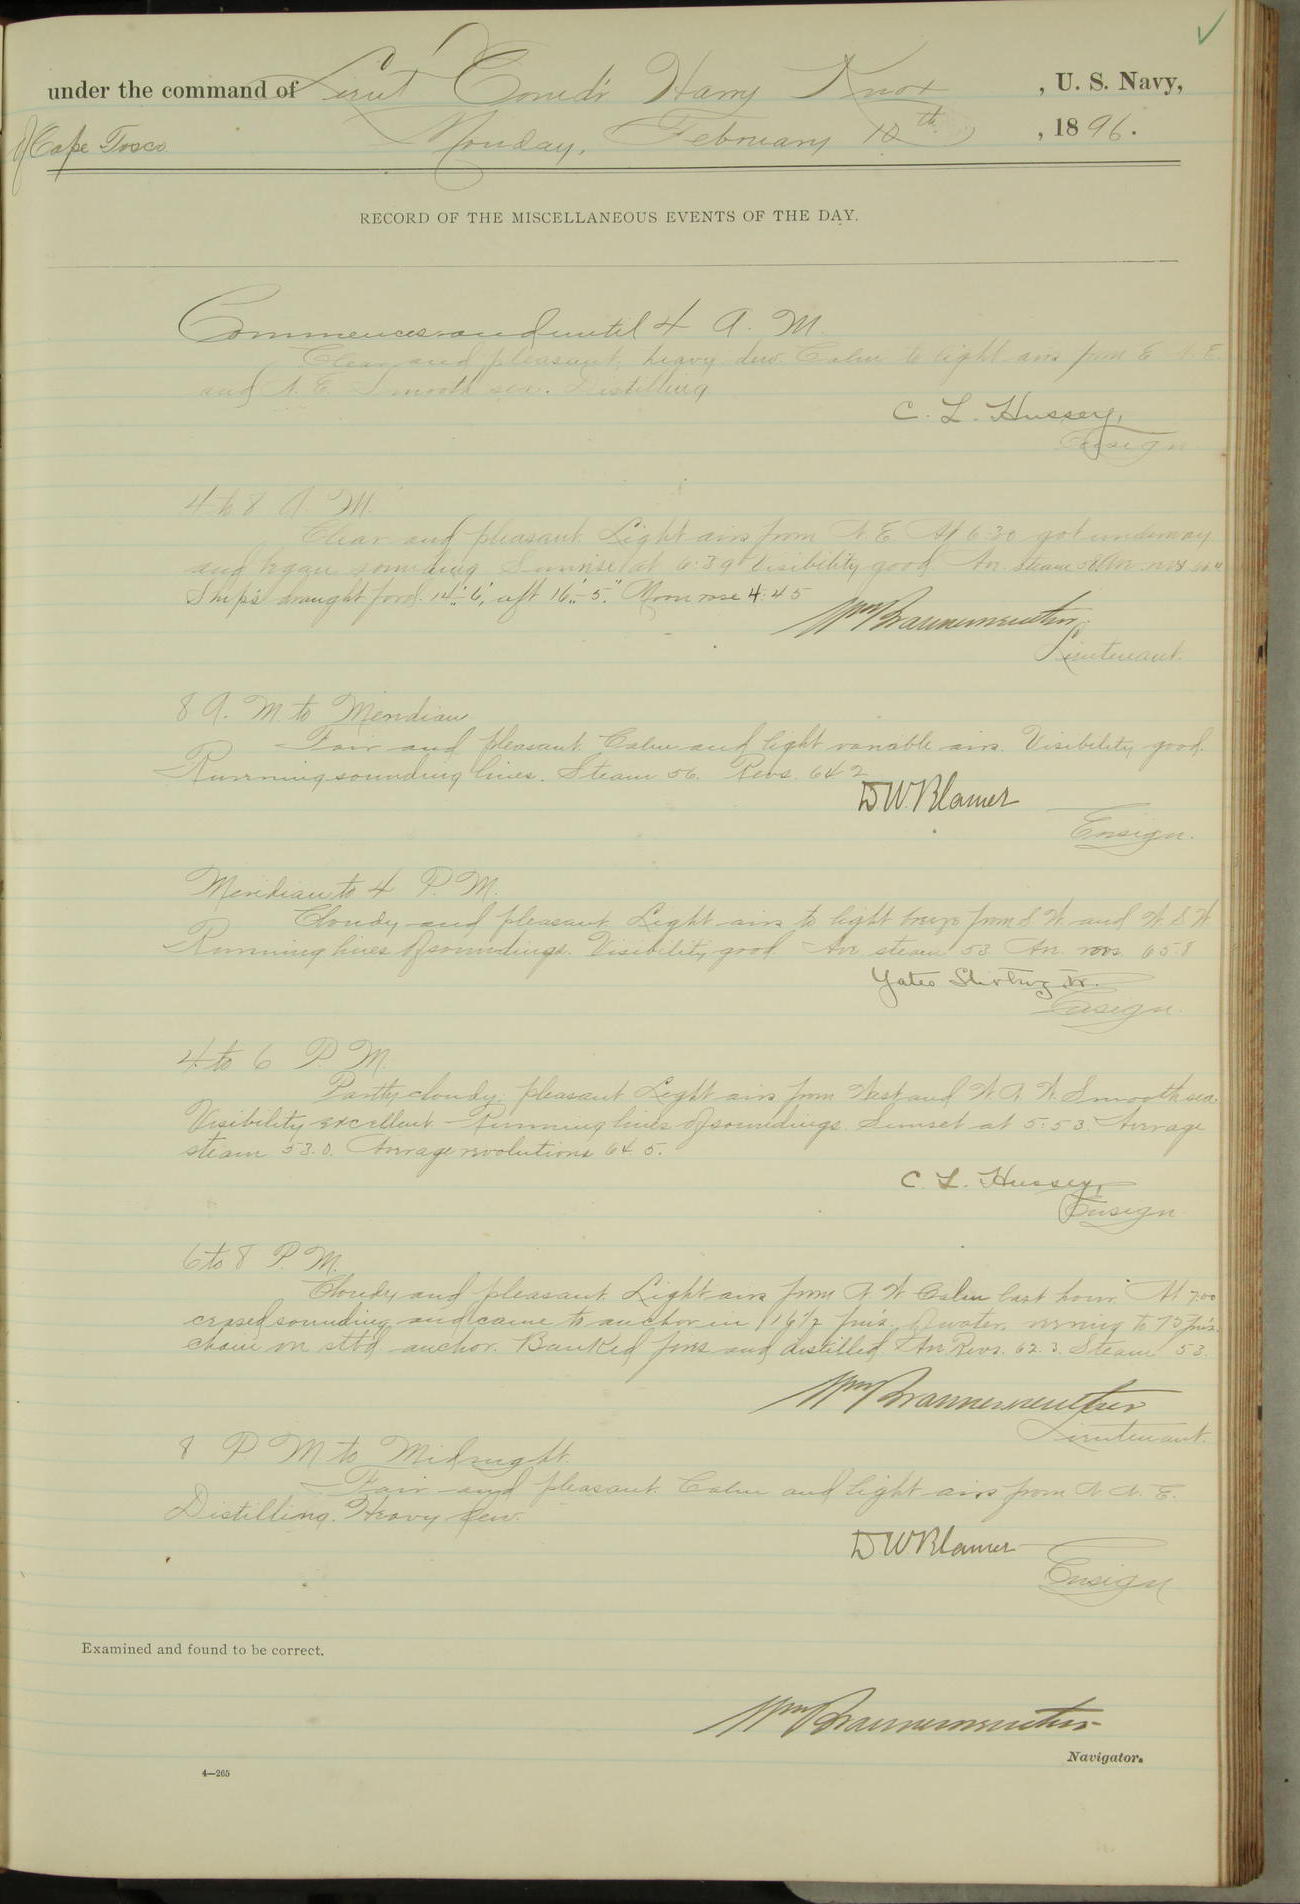 under the command of Lieut Comdr Harry Knox, U. S. Navy,
of Cape Tosco Monday, February 10th, 1896.
RECORD OF THE MISCELLANEOUS EVENTS OF THE DAY.
Commences and until 4 A. M.
Clear and pleasant, heavy dew. Calm to light airs from E N E
and N. E. Smooth sea. Distilling
C. L. Hussey,
Ensign
4 to 8 A. M.
Clear and pleasant. Light airs from N E At 6:30 got underway
and began sounding Sunrise at 6:39 Visibility good Av. Steam
Ship's draught for'd. 14' 6", aft 16'-5". Moon rose 4:45
Wm Braunersreuther,
Lieutenant.
8 A. M. to Meridian
Fair and pleasant. Calm and light variable airs. Visibility good.
Running sounding lines. Steam 56. Revs. 64 2
D W. Blamer
Ensign.
Meridian to 4 P. M.
Cloudy and pleasant. Light airs to light breeze from S W and W S W
Running lines of soundings. Visibility good. Av steam 53 Av. revs. 65.8
Yates Stirling Jr.
Ensign.
4 to 6 P. M.
Partly cloudy, pleasant. Light airs from West and W. N. W. Smooth sea.
Visibility excellent. Running lines of soundings. Sunset at 5:53. Average
steam 53.0. Average revolutions 64.5.
C. L. Hussey,
Ensign
6 to 8 P. M.
Cloudy and pleasant. Light airs from N W Calm last hour. At 7:00
ceased sounding and came to anchor in 16 1/2 fms. of water, veering to 75 fms.
chain on stb'd anchor. Banked fires and distilled. Av Revs. 62.3. Steam 53.
Wm Braunersreuther
Lieutenant.
8 P. M. to Midnight.
Fair and pleasant. Calm and light airs from N. N. E.
Distilling. Heavy dew.
D W Blamer
Ensign
Examined and found to be correct.
Wm Braunersreuther
Navigator.
4—265